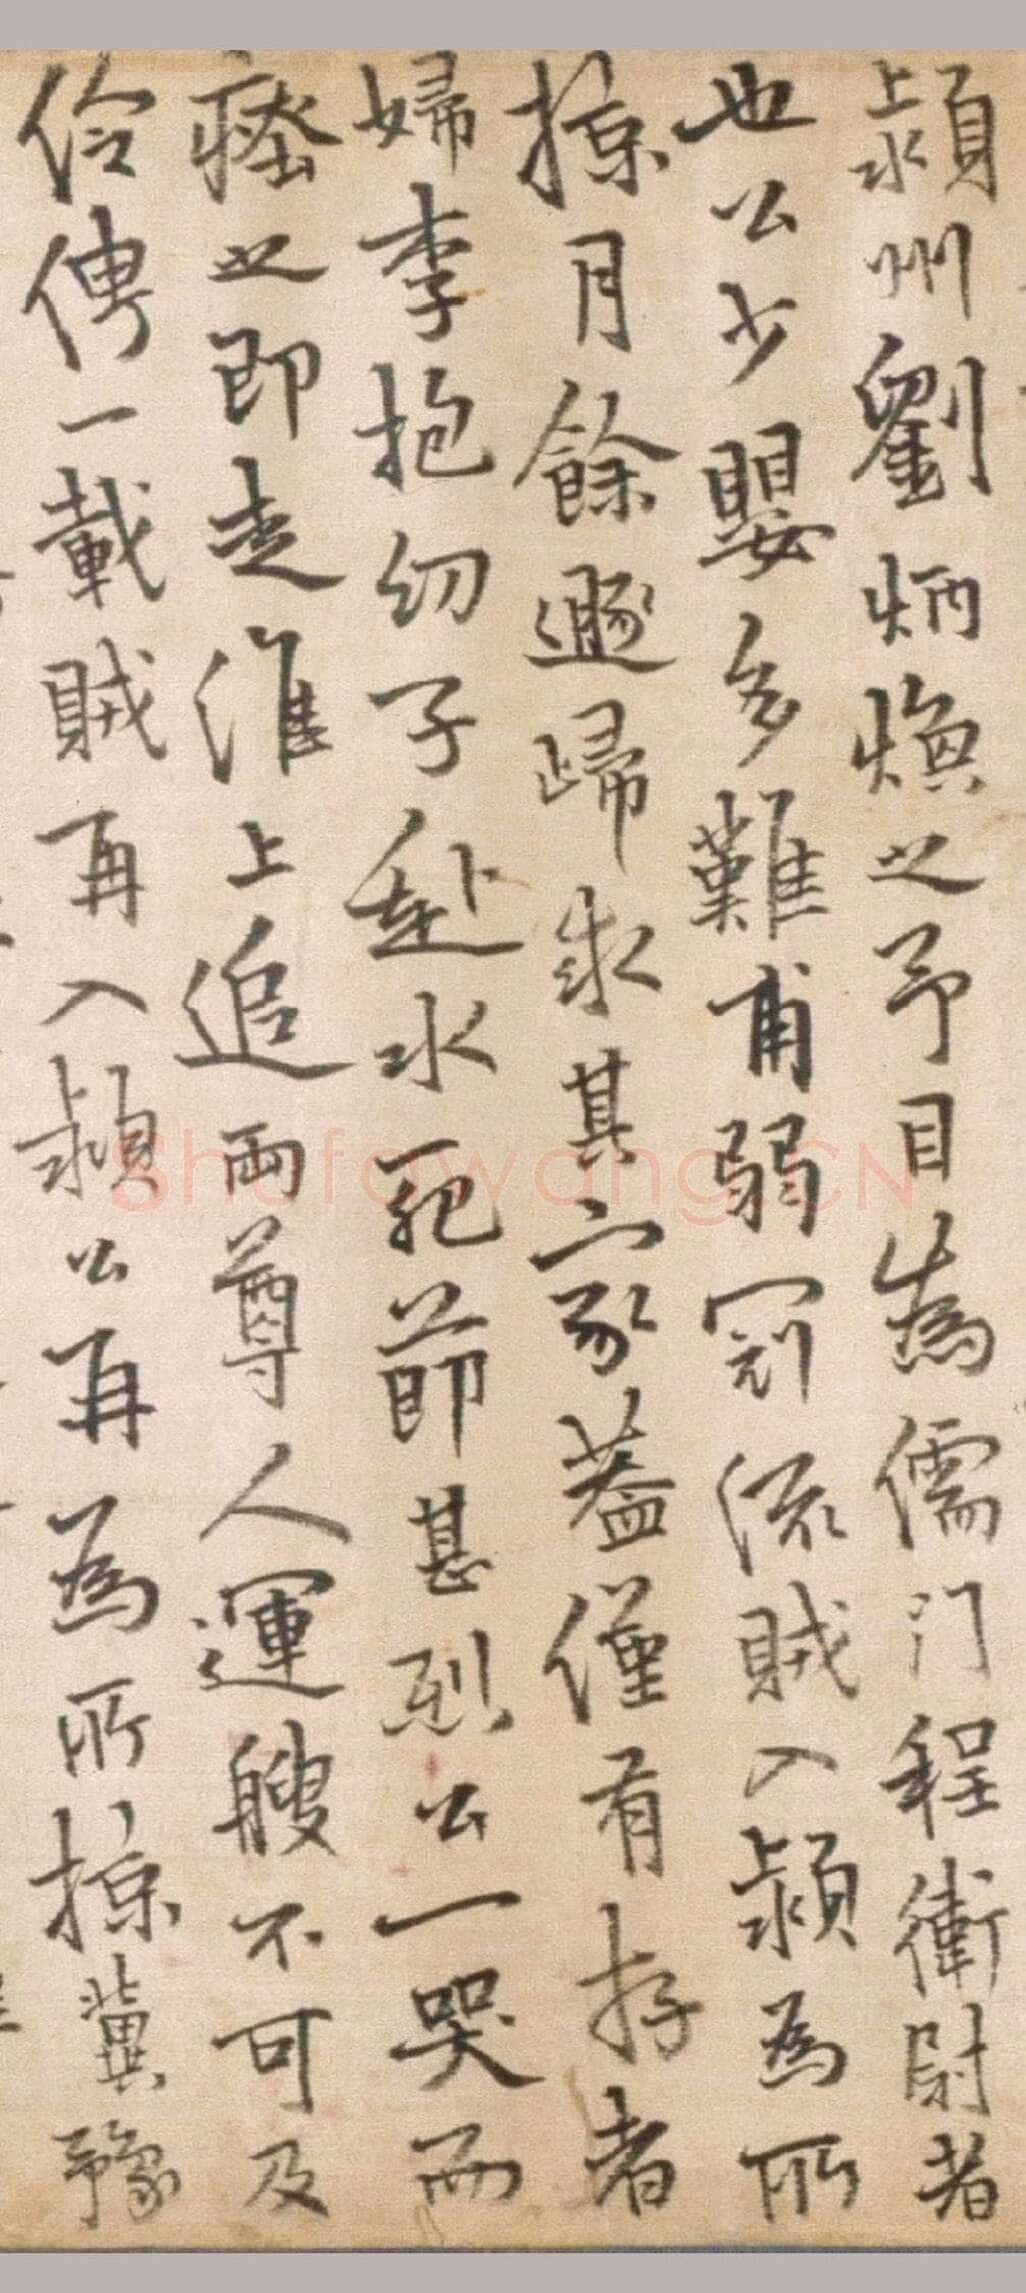 潁州劉炳煥之予目為儒門程衛尉者
也公少嬰多難甫弱冠流賊入潁為所
掠月餘遯歸求其家蓋僅有存者
婦李抱幼子赴水死節甚烈公一哭而
瘞之即走淮上追兩尊人運艘不可及
伶俜一載賊再入潁公再為所掠冀豫
ShufawangCN